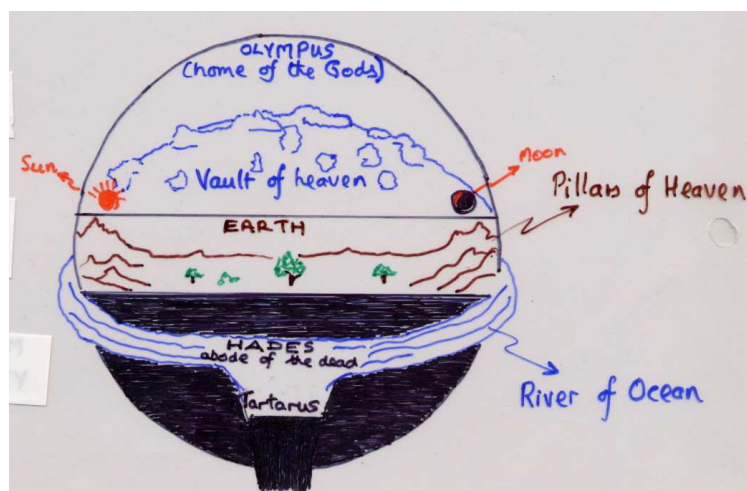 OLYMPUS
(home of the Gods)
Sun
Moon
Vault of heaven
Pillars of Heaven
EARTH
HADES
abode of the dead
Tartarus
River of Ocean